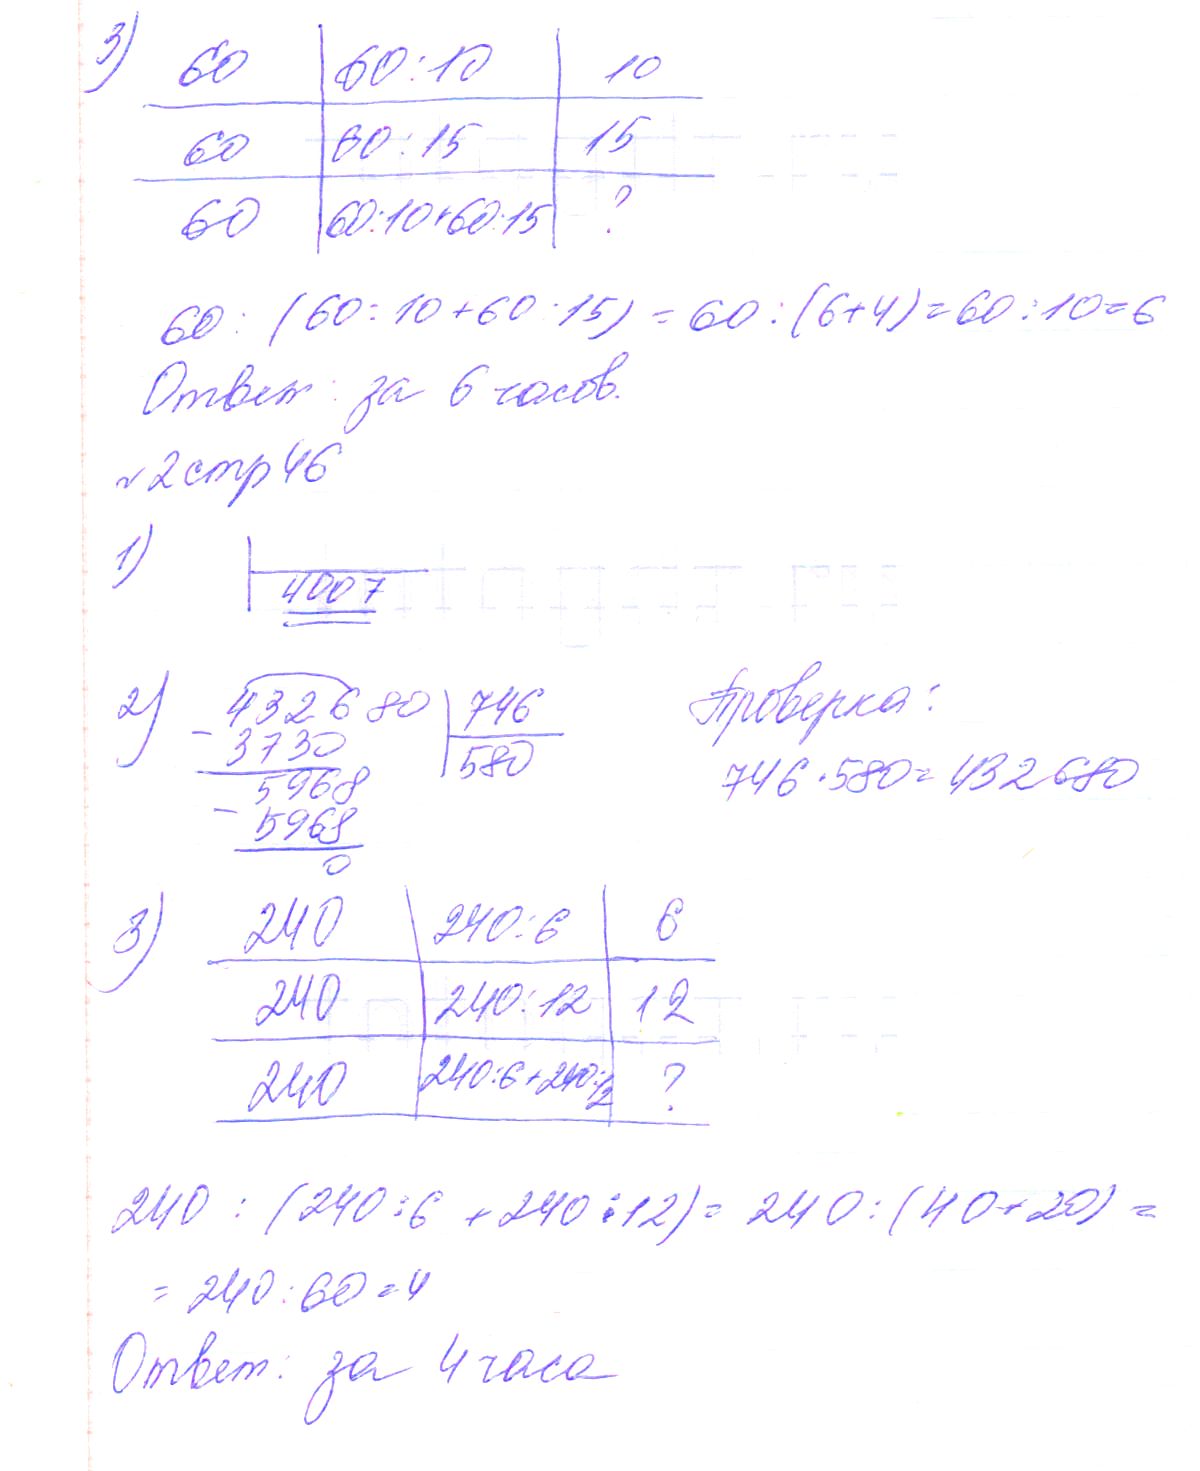 3) 60 60:10 10
60 60:15 15
60 60:10+60:15 ?
60:(60:10+60:15)=60:(6+4)=60:10=6
Ответ: за 6 часов.
№2 стр 46
1)
4007
2) 432680 746
- 3730 580
5968
- 5968
0
Проверка:
746·580=432680
3) 240 240:6 6
240 240:12 12
240 240:6+240:12 ?
240:(240:6+240:12)=240:(40+20)=
=240:60=4
Ответ: за 4 часа